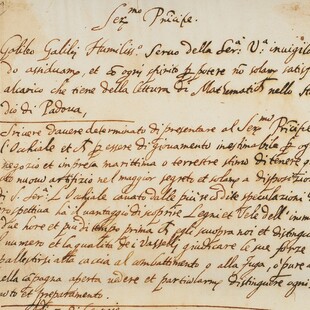 Ser.mo Principe.
Galileo Galilei Humiliss.o Servo della Ser.a V.a invigila
do assiduam.te et cõ ogni spirito p potere nõ solam.te satisf
alcarico che tiene della lettura di Mathematich nello Stu
dio di Padova,
Scrivere d'avere determinato di presentare al Ser.mo Principe
l'Ochiale et p essere di giovamento inestimabile p og
negozio et impresa marittima o terrestre stimo di tenere q
sto nuovo artifizio nel maggior segreto et solam a disposizione
di S. Ser.a L'Ochiale cavato dalle più recõdite speculazioni d
rospettiva ha il vantaggio di scoprire Legni et Vele dell'inim
due hore et più di tempo prima ch egli scuopra noi et distingu
numero et la qualità de i Vasselli, giudicare le sue forze
pallestirsi alla caccia al combattimento o alla fuga, o pure a
ella capagna aperta vedere et particularm distinguere ogni
uto et preparamento.